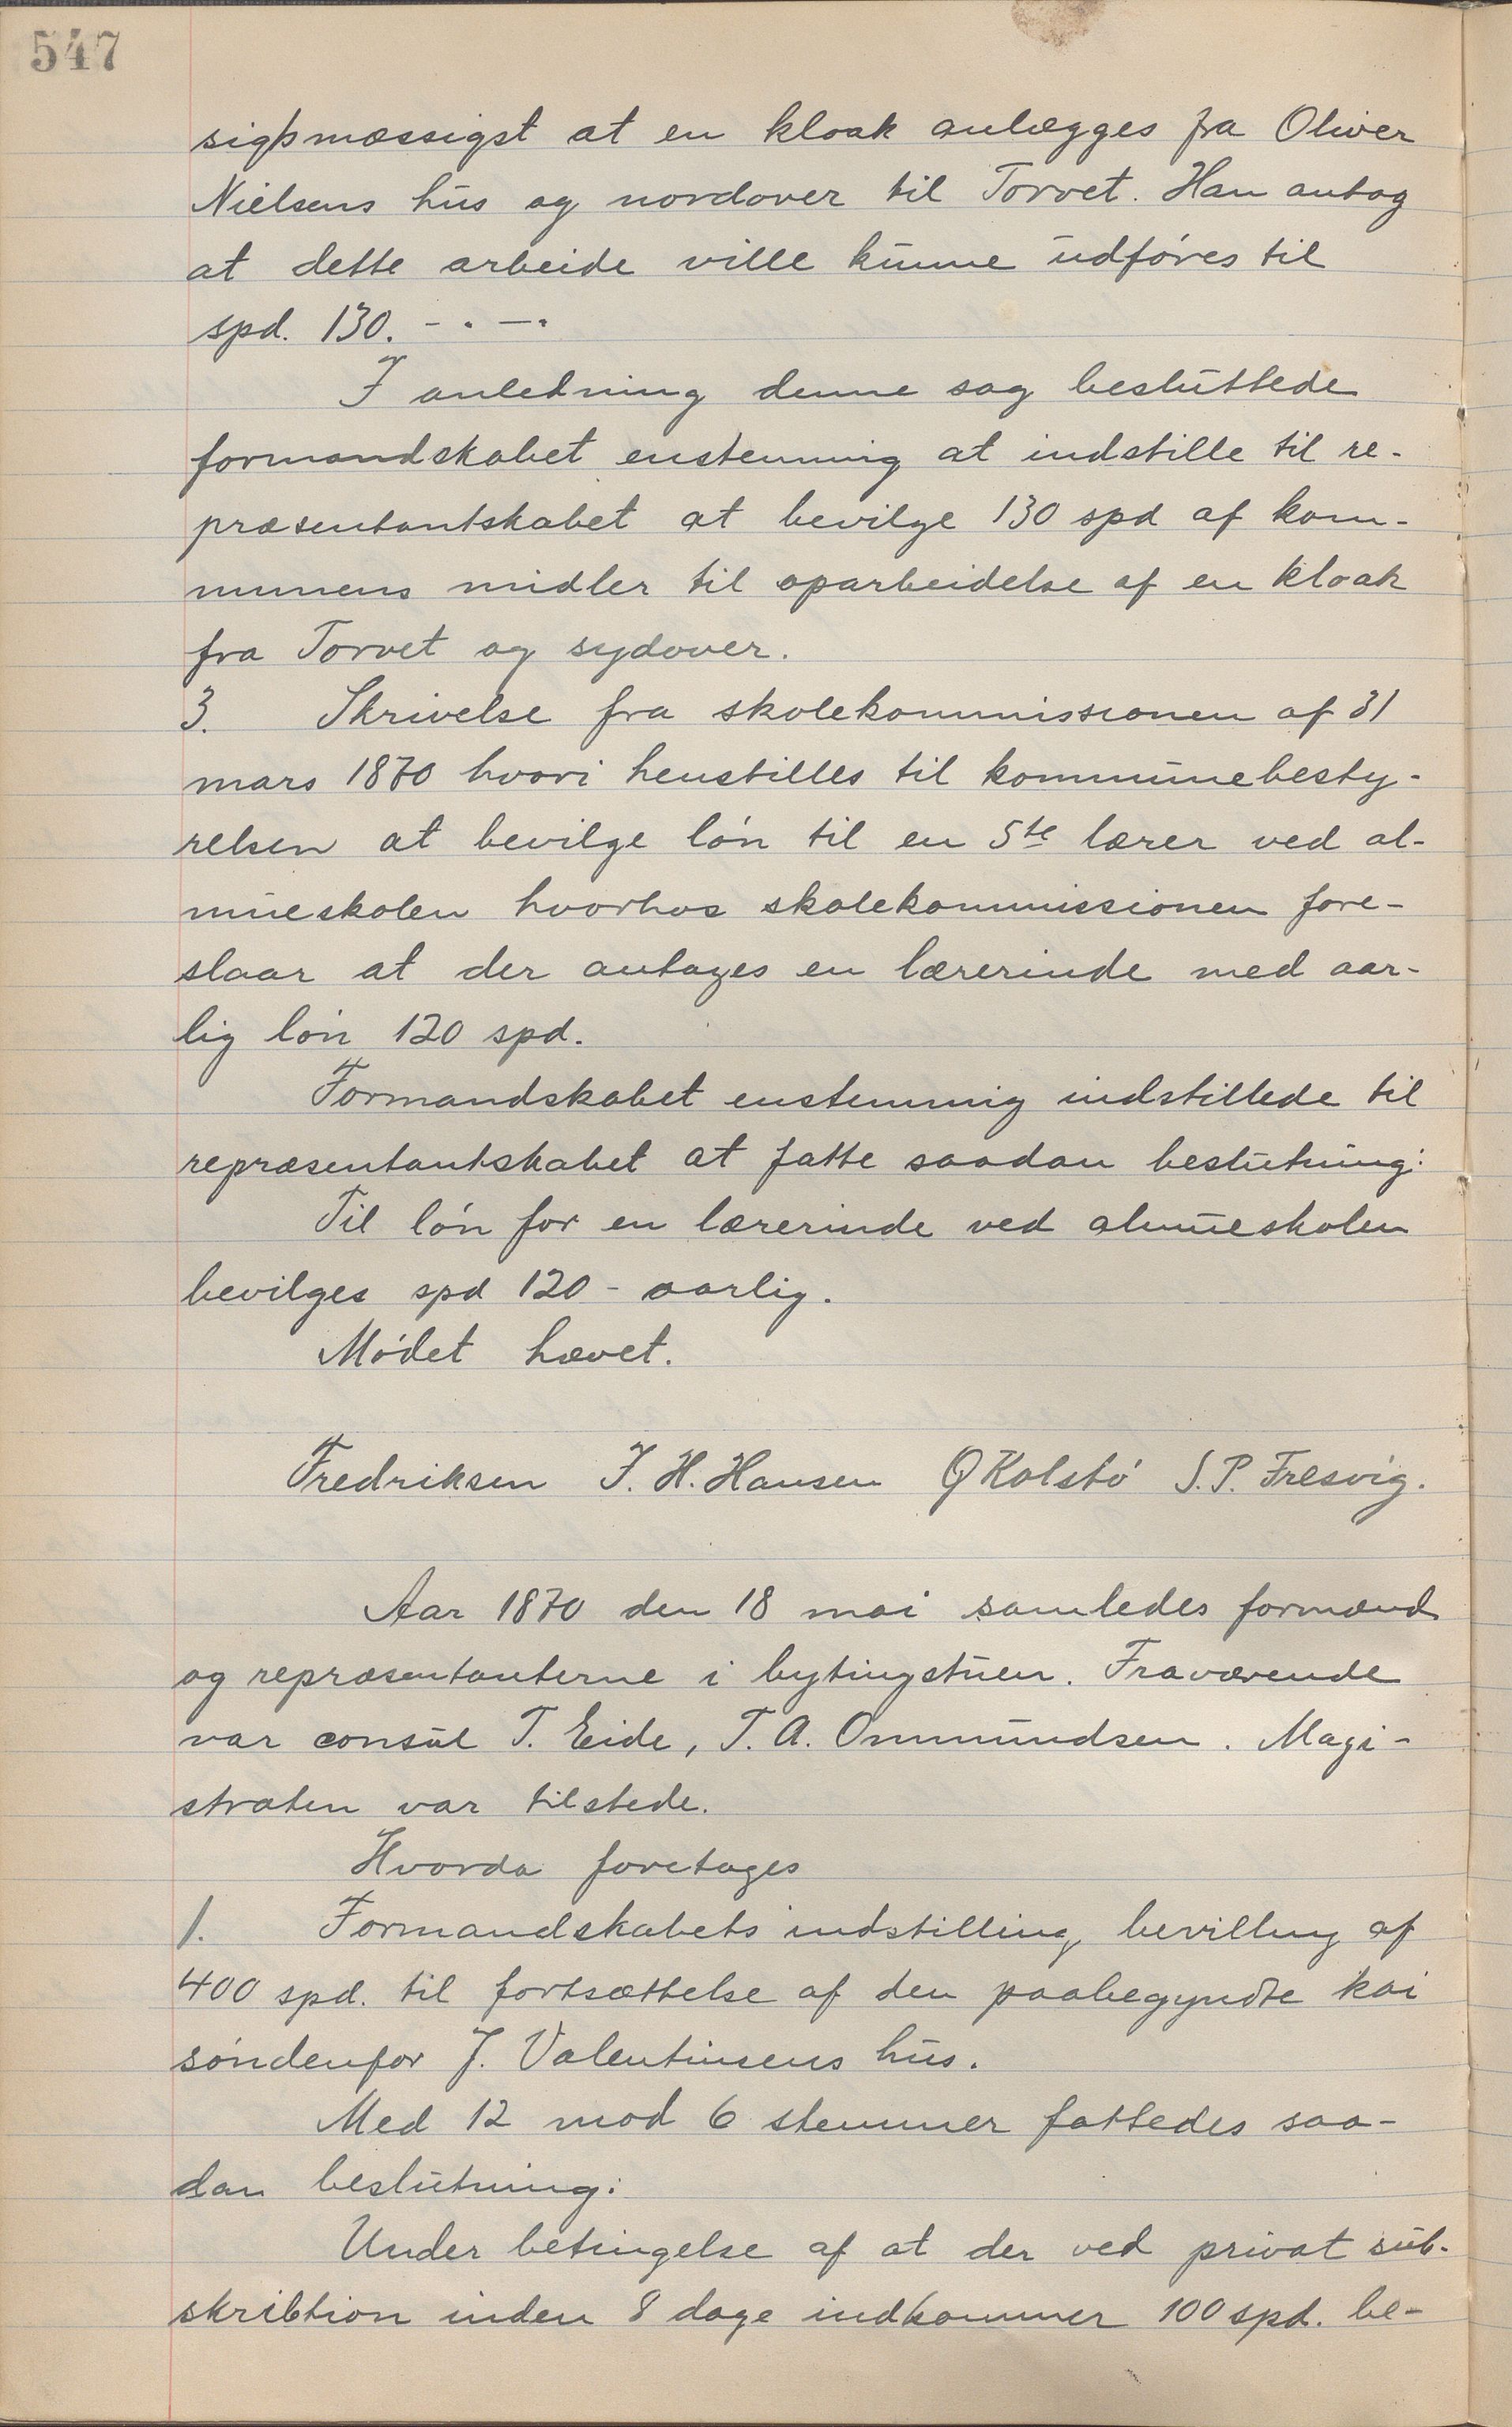 547
sigtsmæssigst at en kloak anlægges fra Oliver
Nielsens hus og nordover til Torvet. Han antog
at dette arbeide ville kunne udføres til
spd. 130. - . - .
I anledning denne sag besluttede
formandskabet enstemmig at indstille til re-
præsentantskabet at bevilge 130 spd af kom-
munens midler til oparbeidelse af en kloak
fra Torvet og sydover.
3. Skrivelse fra skolekommissionen af 31
mars 1870 hvori henstilles til kommunebesty-
relsen at bevilge løn til en 5te lærer ved al-
mueskolen hvorhos skolekommissionen fore-
slaar at der antages en lærerinde med aar-
lig løn 120 spd.
Formandskabet enstemmig indstillede til
repræsentantskabet at fatte saadan beslutning:
Til løn for en lærerinde ved almueskolen
bevilges spd 120 - aarlig.
Mødet hævet.
Fredriksen J. H. Hansen O Kolstø S. P. Fresvig.
Aar 1870 den 18 mai samledes formænd
og repræsentanterne i bytingstuen. Fraværende
var consul T. Eide, T. A. Ommundsen. Magi-
straten var tilstede.
Hvorda foretages
1. Formandskabets indstilling bevilling af
400 spd. til fortsættelse af den paabegyndte kai
søndenfor J. Valentinsens hus.
Med 12 mod 6 stemmer fattedes saa-
dan beslutning:
Under betingelse af at der ved privat sub-
skribtion inden 8 dage indkommer 100 spd. be-